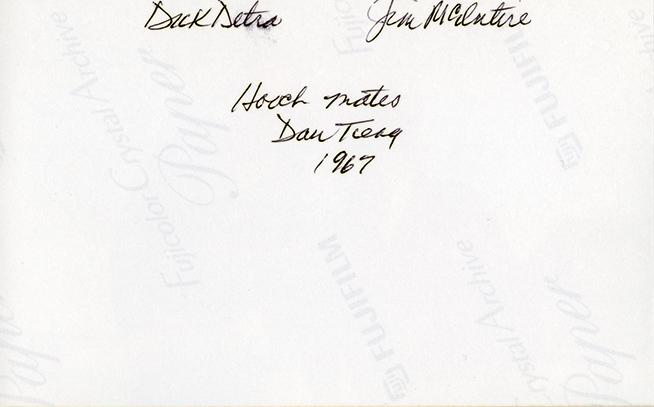 Dick Detra Jim McIntire
Hooch mates
Dau Tieng
1967
Fujicolor Crystal Archive
Paper
FUJIFILM
FUJIFILM
Crystal Archive
Paper